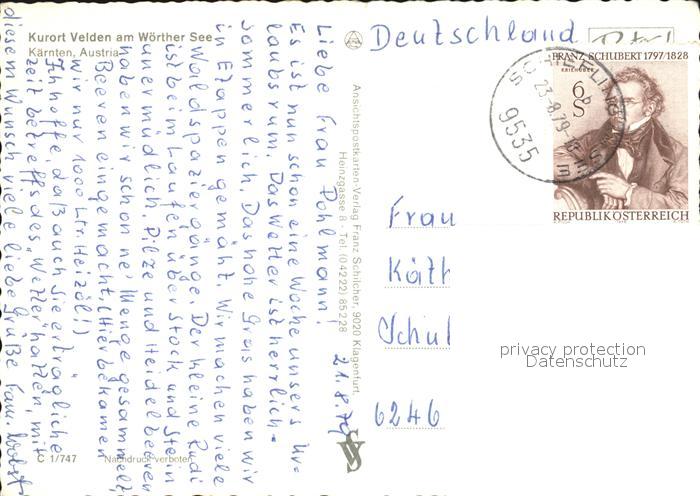 Kurort Velden am Wörther See
Kärnten, Austria
Liebe Frau Pohlmann!
21.8.79
Es ist nun schon eine Woche unsers Ur-
laubs rum. Das Wetter ist herrlich -
sommerlich. Das hohe Gras haben wir
in Etappen gemäht. Wir machen viele
Waldspaziergänge. Der kleine Rudi
ist beim Laufen über Stock und Stein
unermüdlich. Pilze und Heidelbeeren
haben wir schon ne' Menge gesammelt,
Beeren eingemacht. (Hier bekamen
wir nur 1000 Ltr. Heizöl!)
Ich hoffe, daß auch Sie erträgliche
Zeit betreffs des "Wetter" hatten, mit
diesem Wunsch viele liebe Grüße Fam.
C 1/747
Nachdruck verboten
Ansichtspostkarten-Verlag Franz Schilcher, 9020 Klagenfurt,
Heinzgasse 8 - Tel. (0 42 22) 85 2 28
Deutschland
FRANZ SCHUBERT 1797/1828
KRIEHUBER
6 S
REPUBLIK ÖSTERREICH
23.-8.79-13
9535
Frau
Käth
Schul
6246
privacy protection
Datenschutz